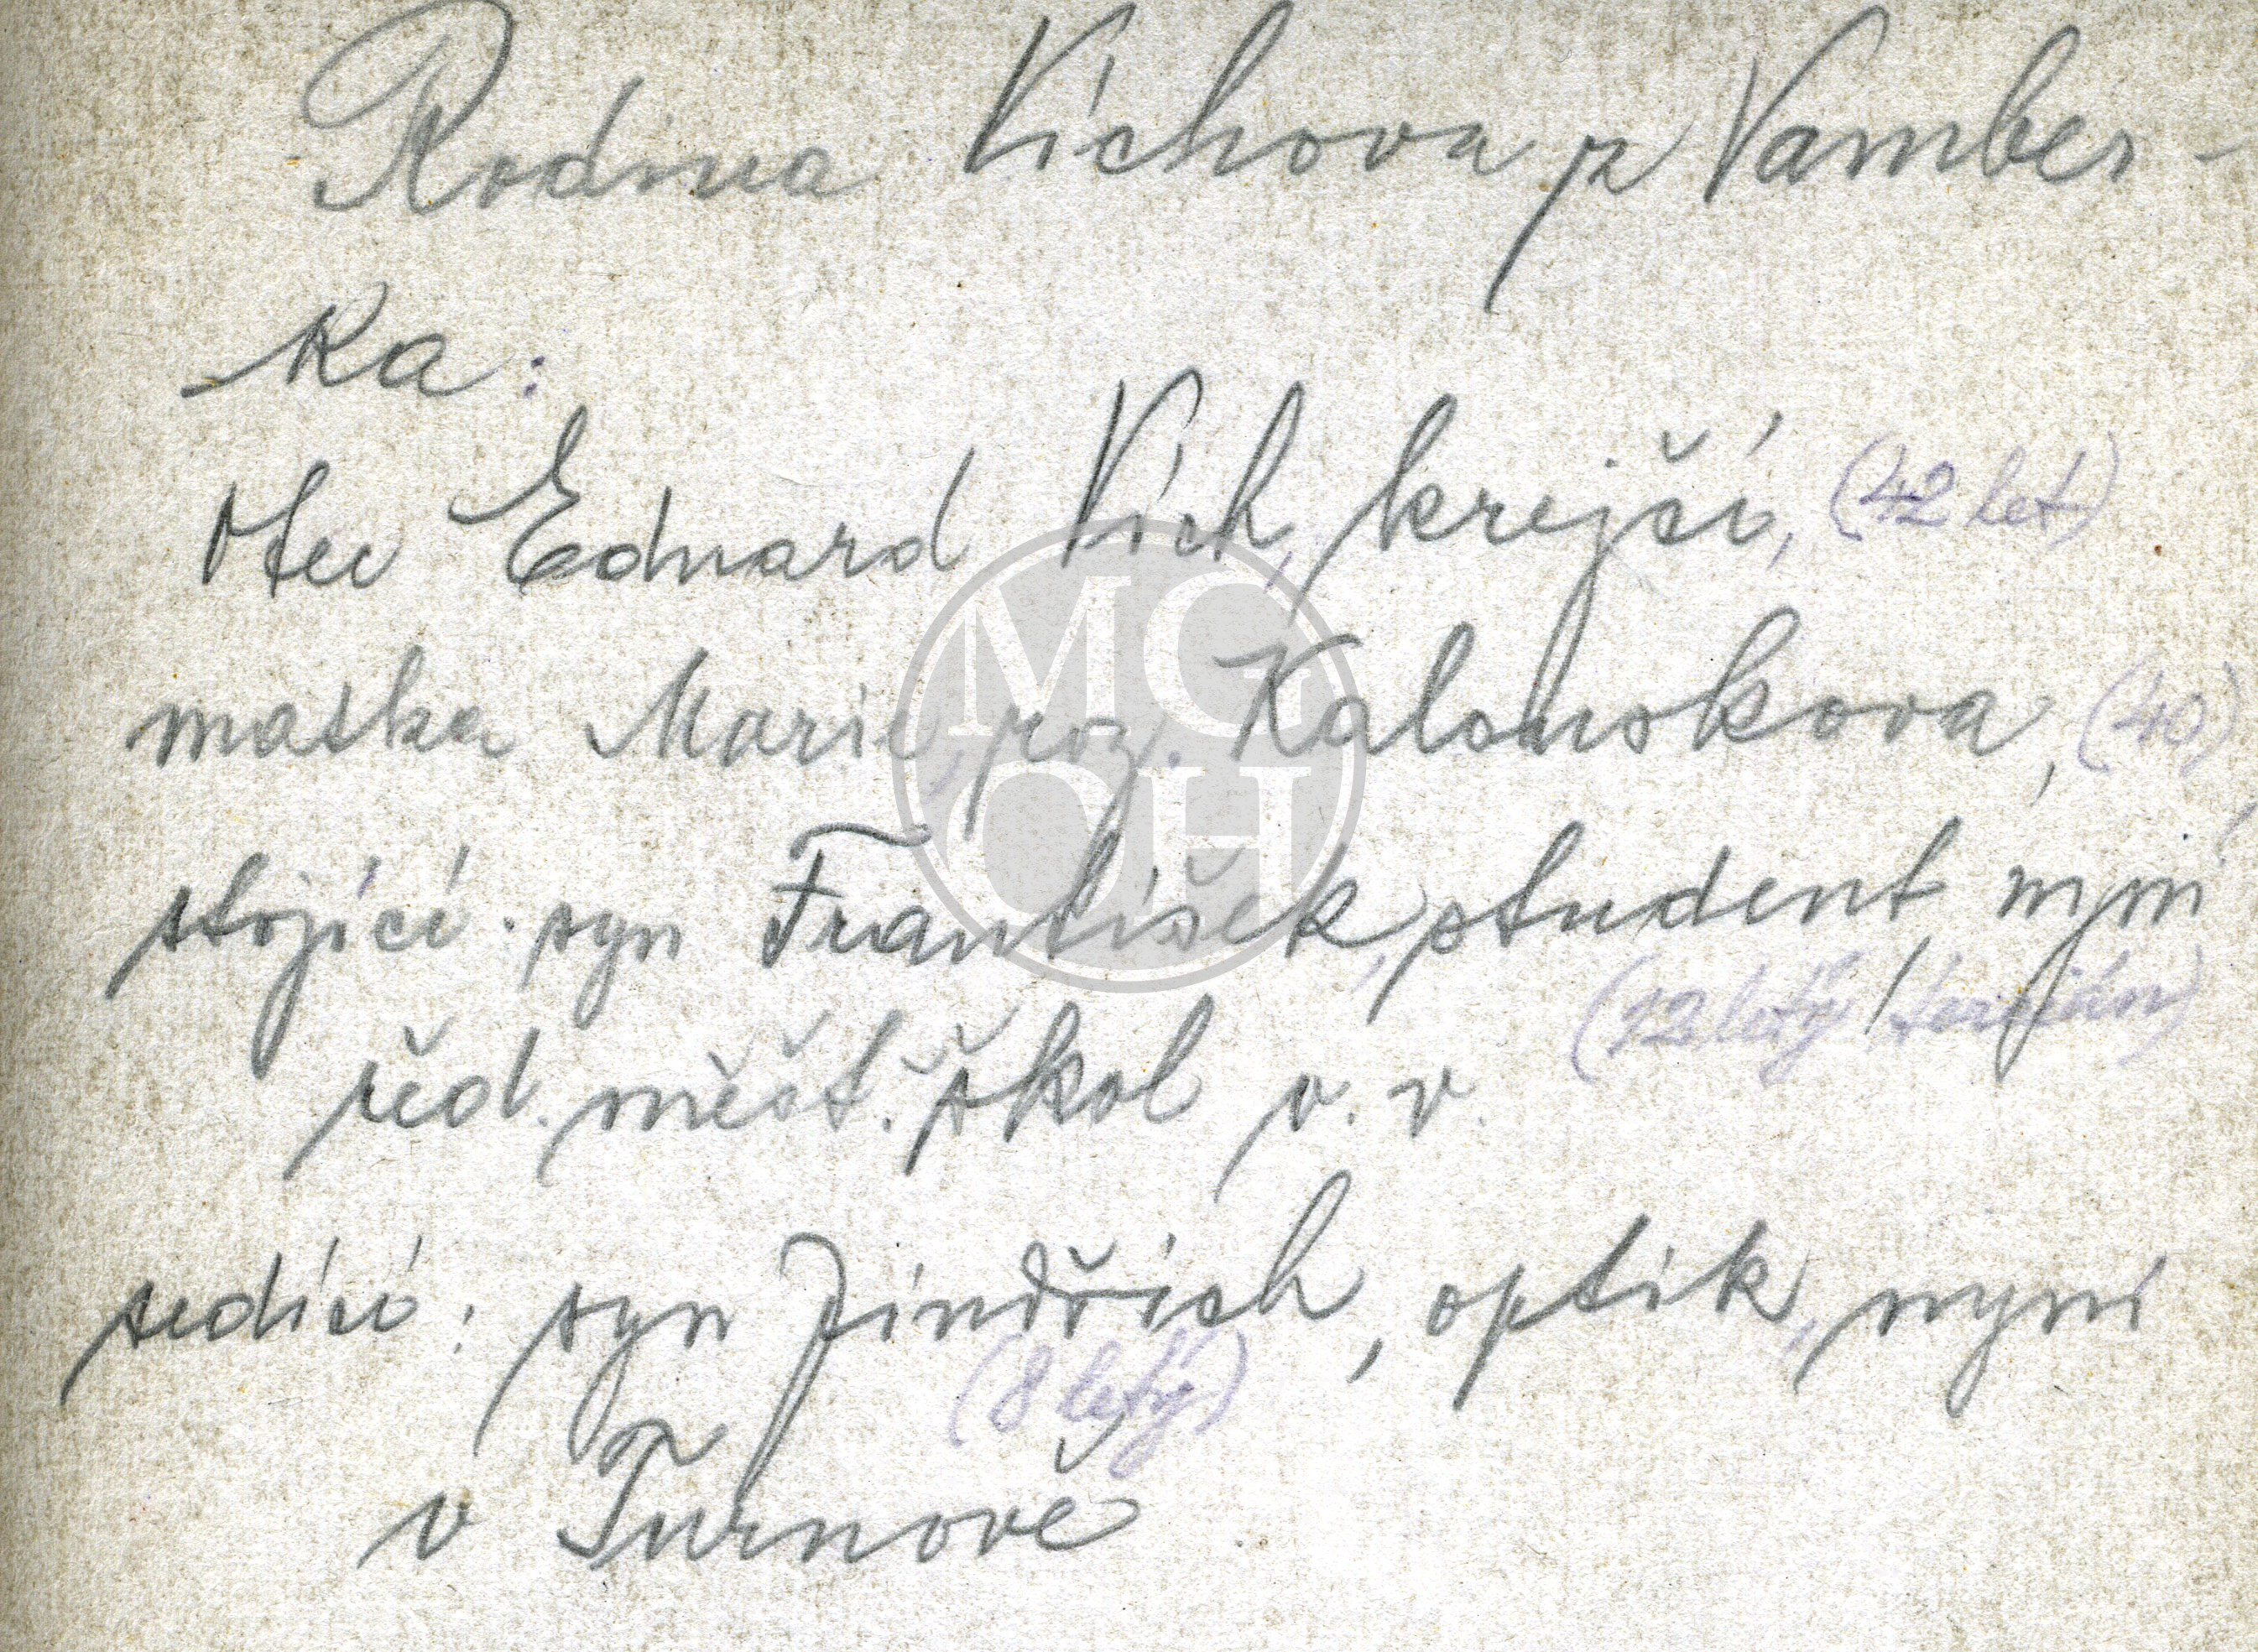 Rodina Víchova z Vamber-
ka:
Otec Eduard Vích, krejčí, (42 let)
matka Marie, roz. Kalouskova, (40)
stojící. syn František, student, nyní
(12 letý tercián)
řed. měšť. škol v. v.
sedící: syn Jindřich, optik, nyní
(8 letý)
v Turnově
MG
OH